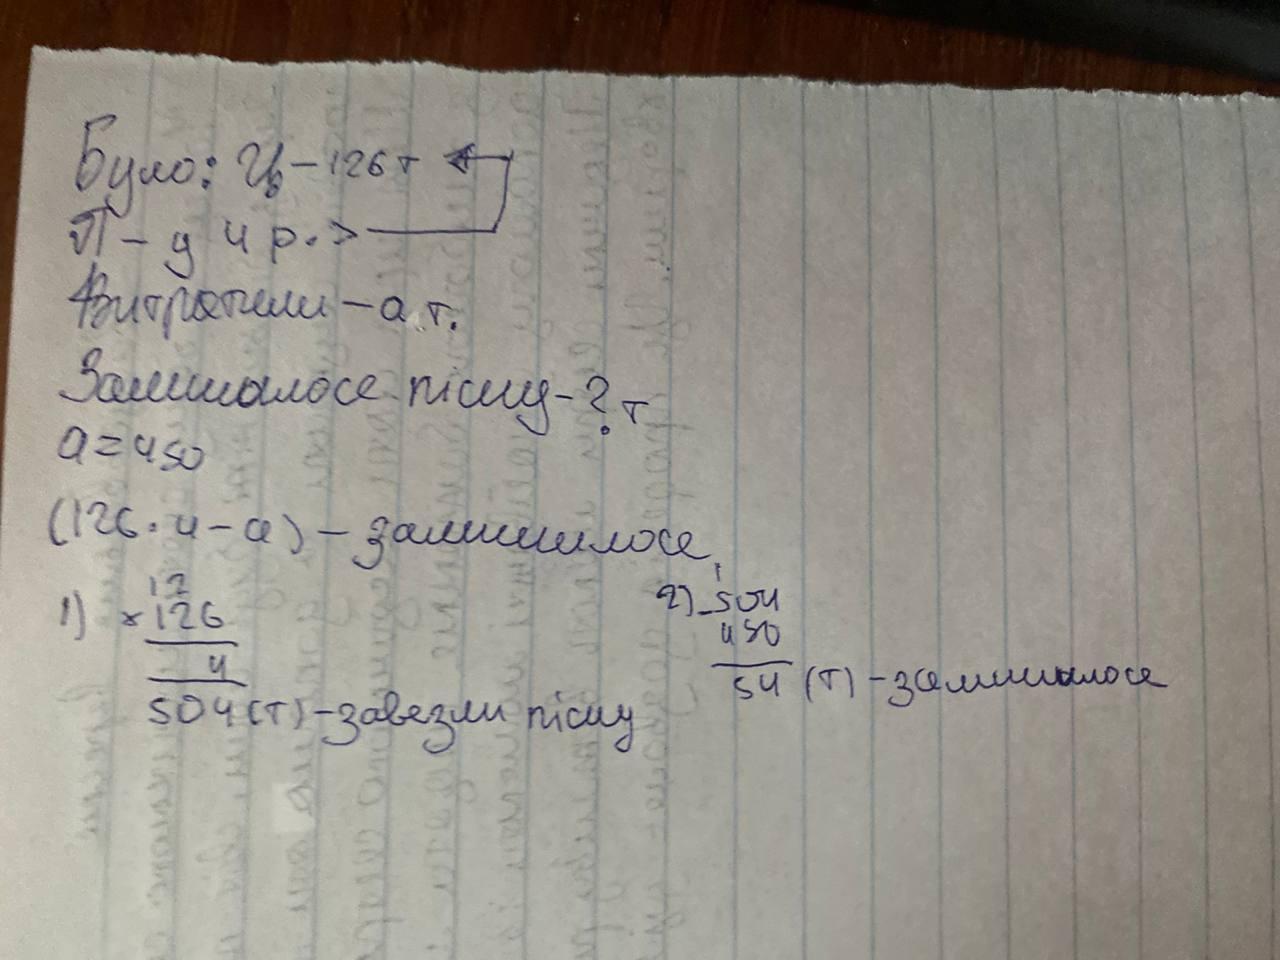 Було: Ц - 126 т
П - у 4 р. >
Витратили - а т.
Залишилося піску - ? т
а = 450
(126 · 4 - а) - залишилося
1) × 126
4
504 (т) - завезли піску
2) - 504
450
54 (т) - залишилося